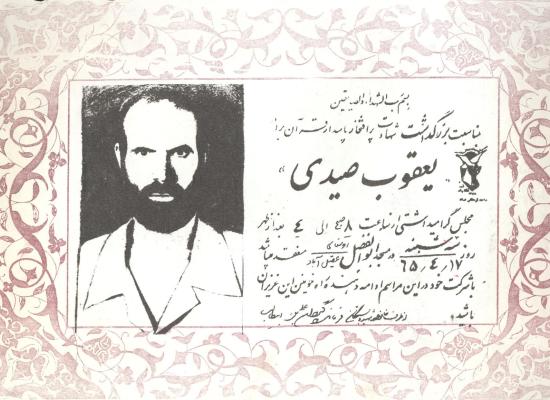 بسم رب الشهداء والصدیقین
بمناسبت بزرگداشت شهادت پر افتخار پاسدار قرآن برادر
«یعقوب صیدی»
مجلس گرامیداشتی از ساعت ۸ صبح الی ٤ بعد از ظهر
روز سه شنبه ۶۵/٤/۱۷ در مسجد ابوالفضل منعقد میباشد
با شرکت خود در این مراسم ادامه دهنده راه خونین این عزیزان
باشید.